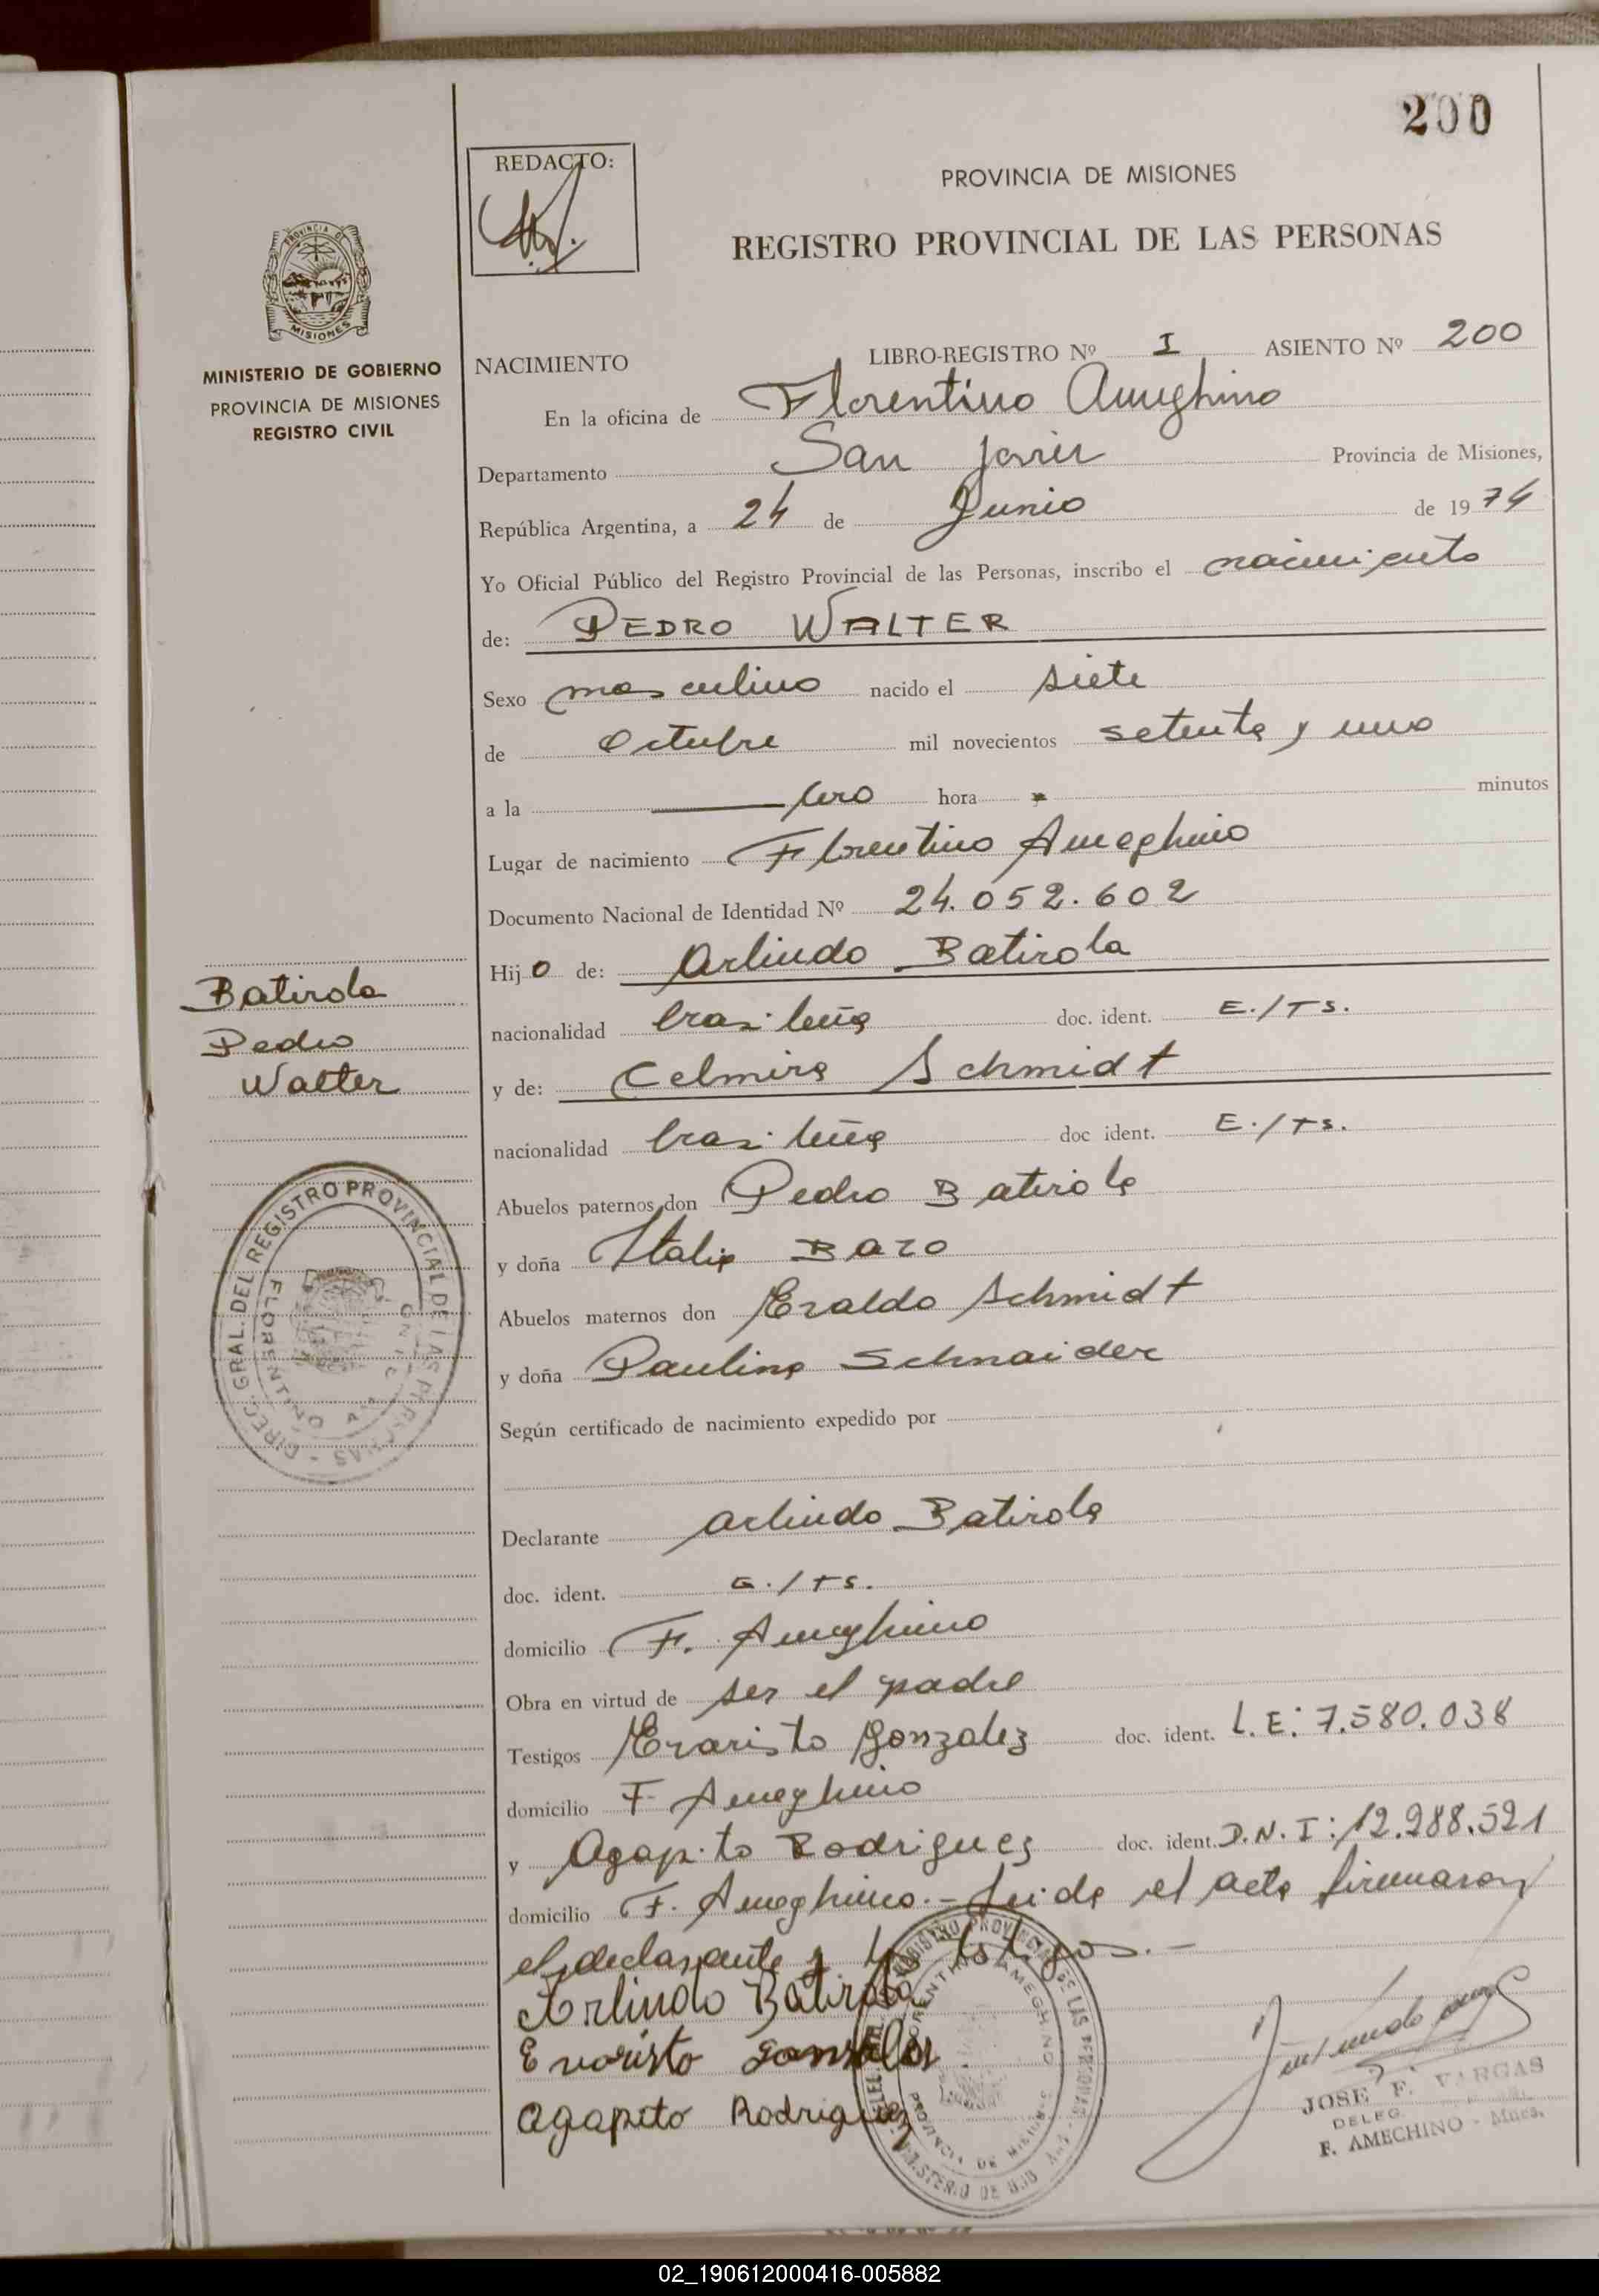 200
REDACTO:
PROVINCIA DE MISIONES
REGISTRO PROVINCIAL DE LAS PERSONAS
MISIONES
MINISTERIO DE GOBIERNO
PROVINCIA DE MISIONES
REGISTRO CIVIL
NACIMIENTO LIBRO-REGISTRO Nº I ASIENTO Nº 200
En la oficina de Florentino Ameghino
Departamento San Javier Provincia de Misiones,
República Argentina, a 24 de Junio de 1974
Yo Oficial Público del Registro Provincial de las Personas, inscribo el nacimiento
de: PEDRO WALTER
Sexo masculino nacido el siete
de Octubre mil novecientos setenta y uno
a la cero hora minutos
Lugar de nacimiento Florentino Ameghino
Documento Nacional de Identidad Nº 24.052.602
Hijo de: Arlindo Batirola
nacionalidad brasileña doc. ident. E./TS.
y de: Celmira Schmidt
nacionalidad brasileña doc ident. E./TS.
Abuelos paternos don Pedro Batirola
y doña Italia BAZO
Abuelos maternos don Eraldo Schmidt
y doña Paulina Schnaider
Según certificado de nacimiento expedido por
Declarante Arlindo Batirola
doc. ident. E./TS.
domicilio F. Ameghino
Obra en virtud de ser el padre
Testigos Evaristo Gonzalez doc. ident. L.E: 7.580.038
domicilio F. Ameghino
y Agapito Rodrigues doc. ident. D.N.I: 12.988.521
domicilio F. Ameghino.- Leida el acta firmaron
el declarante y los testigos.-
Arlindo Batirola
Evaristo Gonsales
Agapito Rodriguez
Batirola
Pedro
Walter
DIREC. GRAL. DEL REGISTRO PROVINCIAL DE LAS PERSONAS
JOSE F. VARGAS
DELEG.
F. AMECHINO - Mnes.
02_190612000416-005882